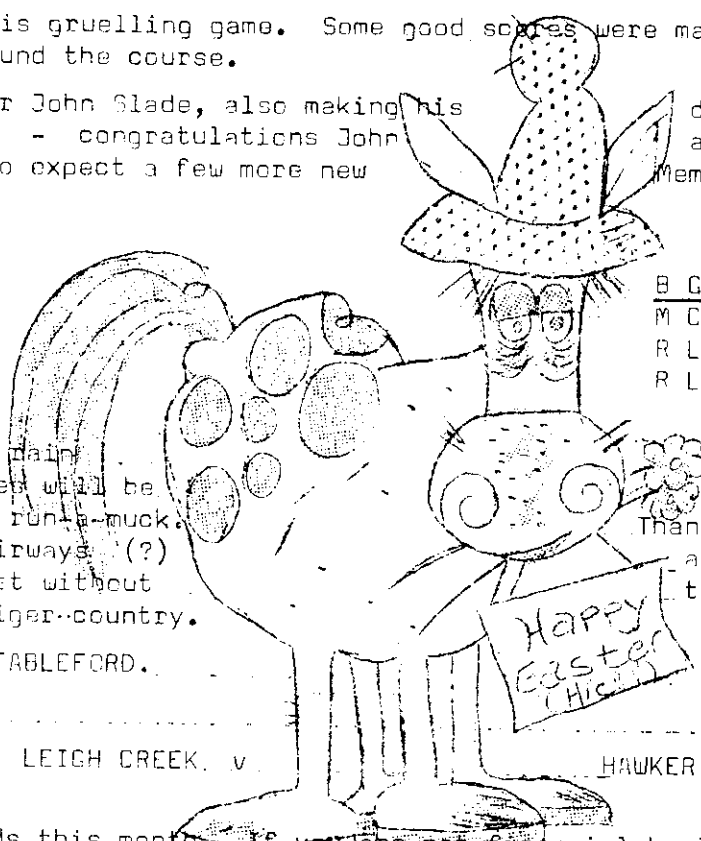 is gruelling game. Some good scores were ma
und the course.
r John Slade, also making his d
- congratulations John a
o expect a few more new Mem
B G
M C
R L
R L
rain
es will be
run-a-muck.
irways (?)
t without
iger-country.
Than
a
t
Happy
Easter
(Hic!!)
TABLEFORD.
LEIGH CREEK. v HAWKER
ds this month. If